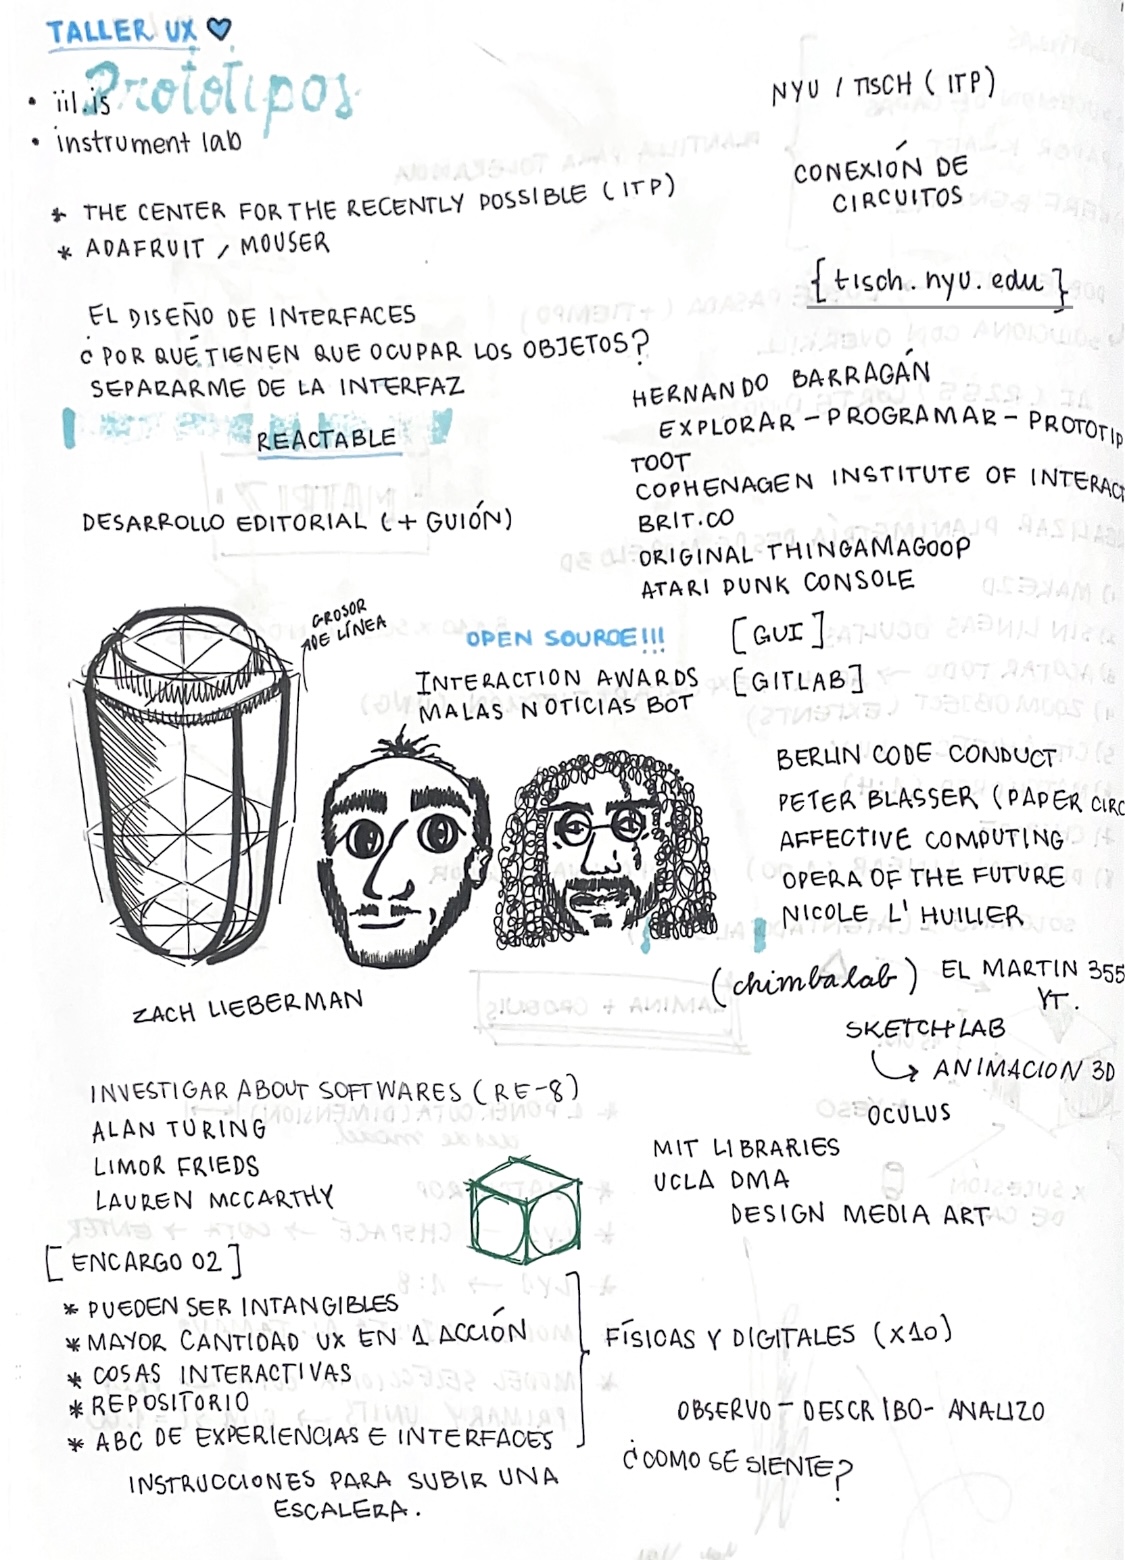 TALLER UX
Prototipos
• iil.is
• instrument lab
* THE CENTER FOR THE RECENTLY POSSIBLE (ITP)
* ADAFRUIT / MOUSER
NYU / TISCH (ITP)
CONEXIÓN DE
CIRCUITOS
{tisch.nyu.edu}
EL DISEÑO DE INTERFACES
¿POR QUÉ TIENEN QUE OCUPAR LOS OBJETOS?
SEPARARME DE LA INTERFAZ
REACTABLE
DESARROLLO EDITORIAL (+ GUIÓN)
HERNANDO BARRAGÁN
EXPLORAR - PROGRAMAR - PROTOTIP
TOOT
COPHENAGEN INSTITUTE OF INTERACT
BRIT.CO
ORIGINAL THINGAMAGOOP
ATARI PUNK CONSOLE
GROSOR
DE LÍNEA
OPEN SOURCE!!!
[GUI]
INTERACTION AWARDS
[GITLAB]
MALAS NOTICIAS BOT
BERLIN CODE CONDUCT
PETER BLASSER (PAPER CIRC
AFFECTIVE COMPUTING
OPERA OF THE FUTURE
NICOLE L'HUILIER
(chimbalab) EL MARTIN 355
YT.
SKETCHLAB
↳ ANIMACION 3D
OCULUS
ZACH LIEBERMAN
INVESTIGAR ABOUT SOFTWARES (RE-8)
ALAN TURING
LIMOR FRIEDS
LAUREN MCCARTHY
MIT LIBRARIES
UCLA DMA
DESIGN MEDIA ART
[ENCARGO 02]
* PUEDEN SER INTANGIBLES
* MAYOR CANTIDAD UX EN 1 ACCIÓN
* COSAS INTERACTIVAS
* REPOSITORIO
* ABC DE EXPERIENCIAS E INTERFACES
FÍSICAS Y DIGITALES (X10)
OBSERVO - DESCRIBO - ANALIZO
¿COMO SE SIENTE?
INSTRUCCIONES PARA SUBIR UNA
ESCALERA.